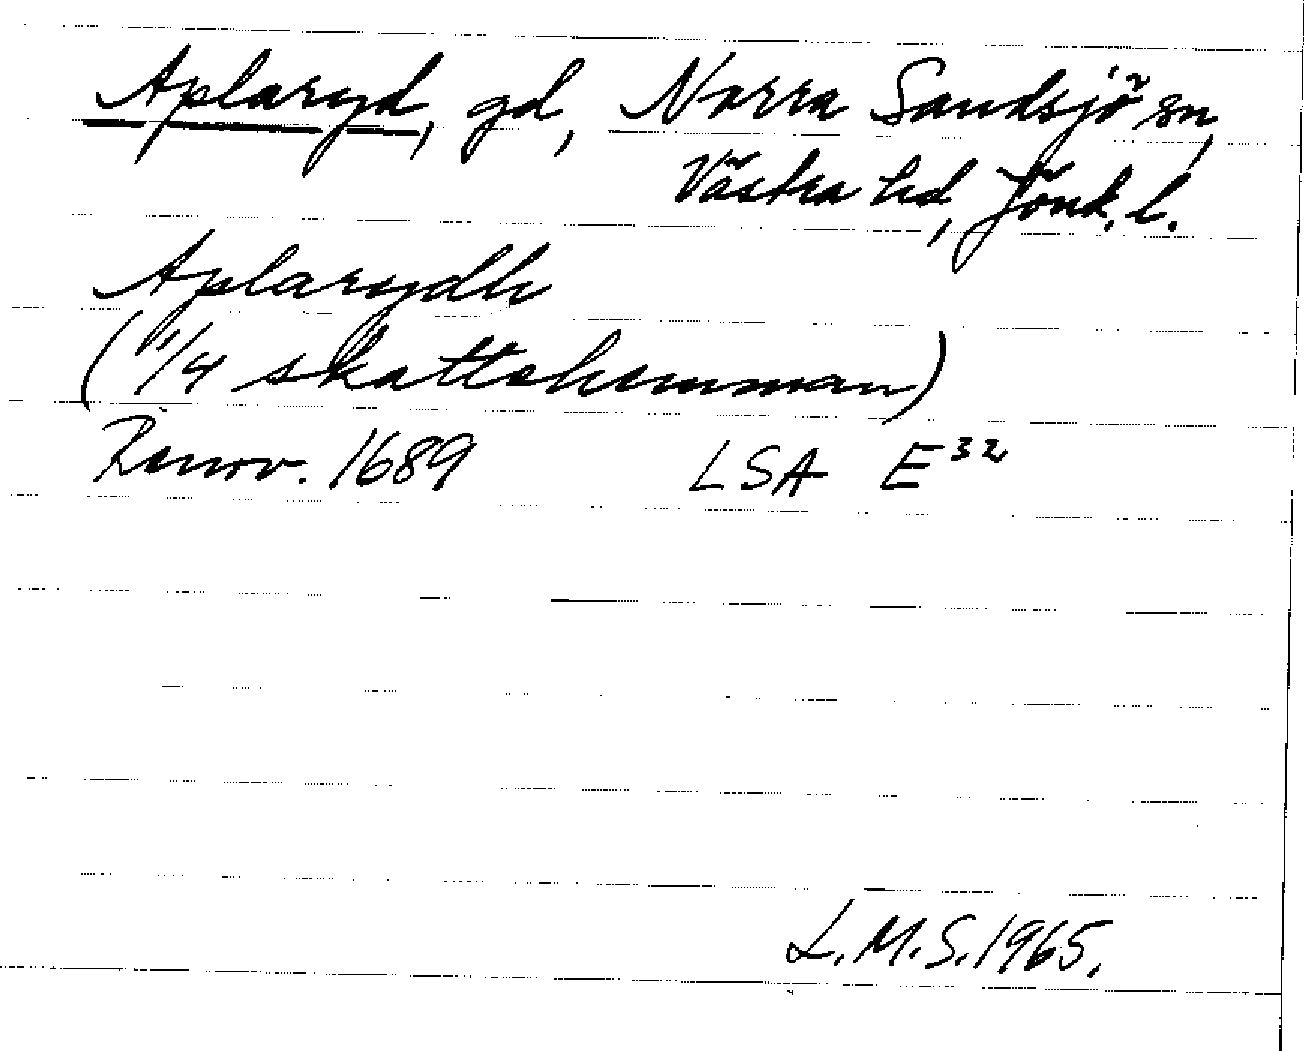 Aplaryd, gd, Norra Sandsjö sn,
Västra hd, Jönk. l.
Aplarydh
(1/4 skattehemman)
Renov. 1689 LSA E32
L.M.S. 1965.